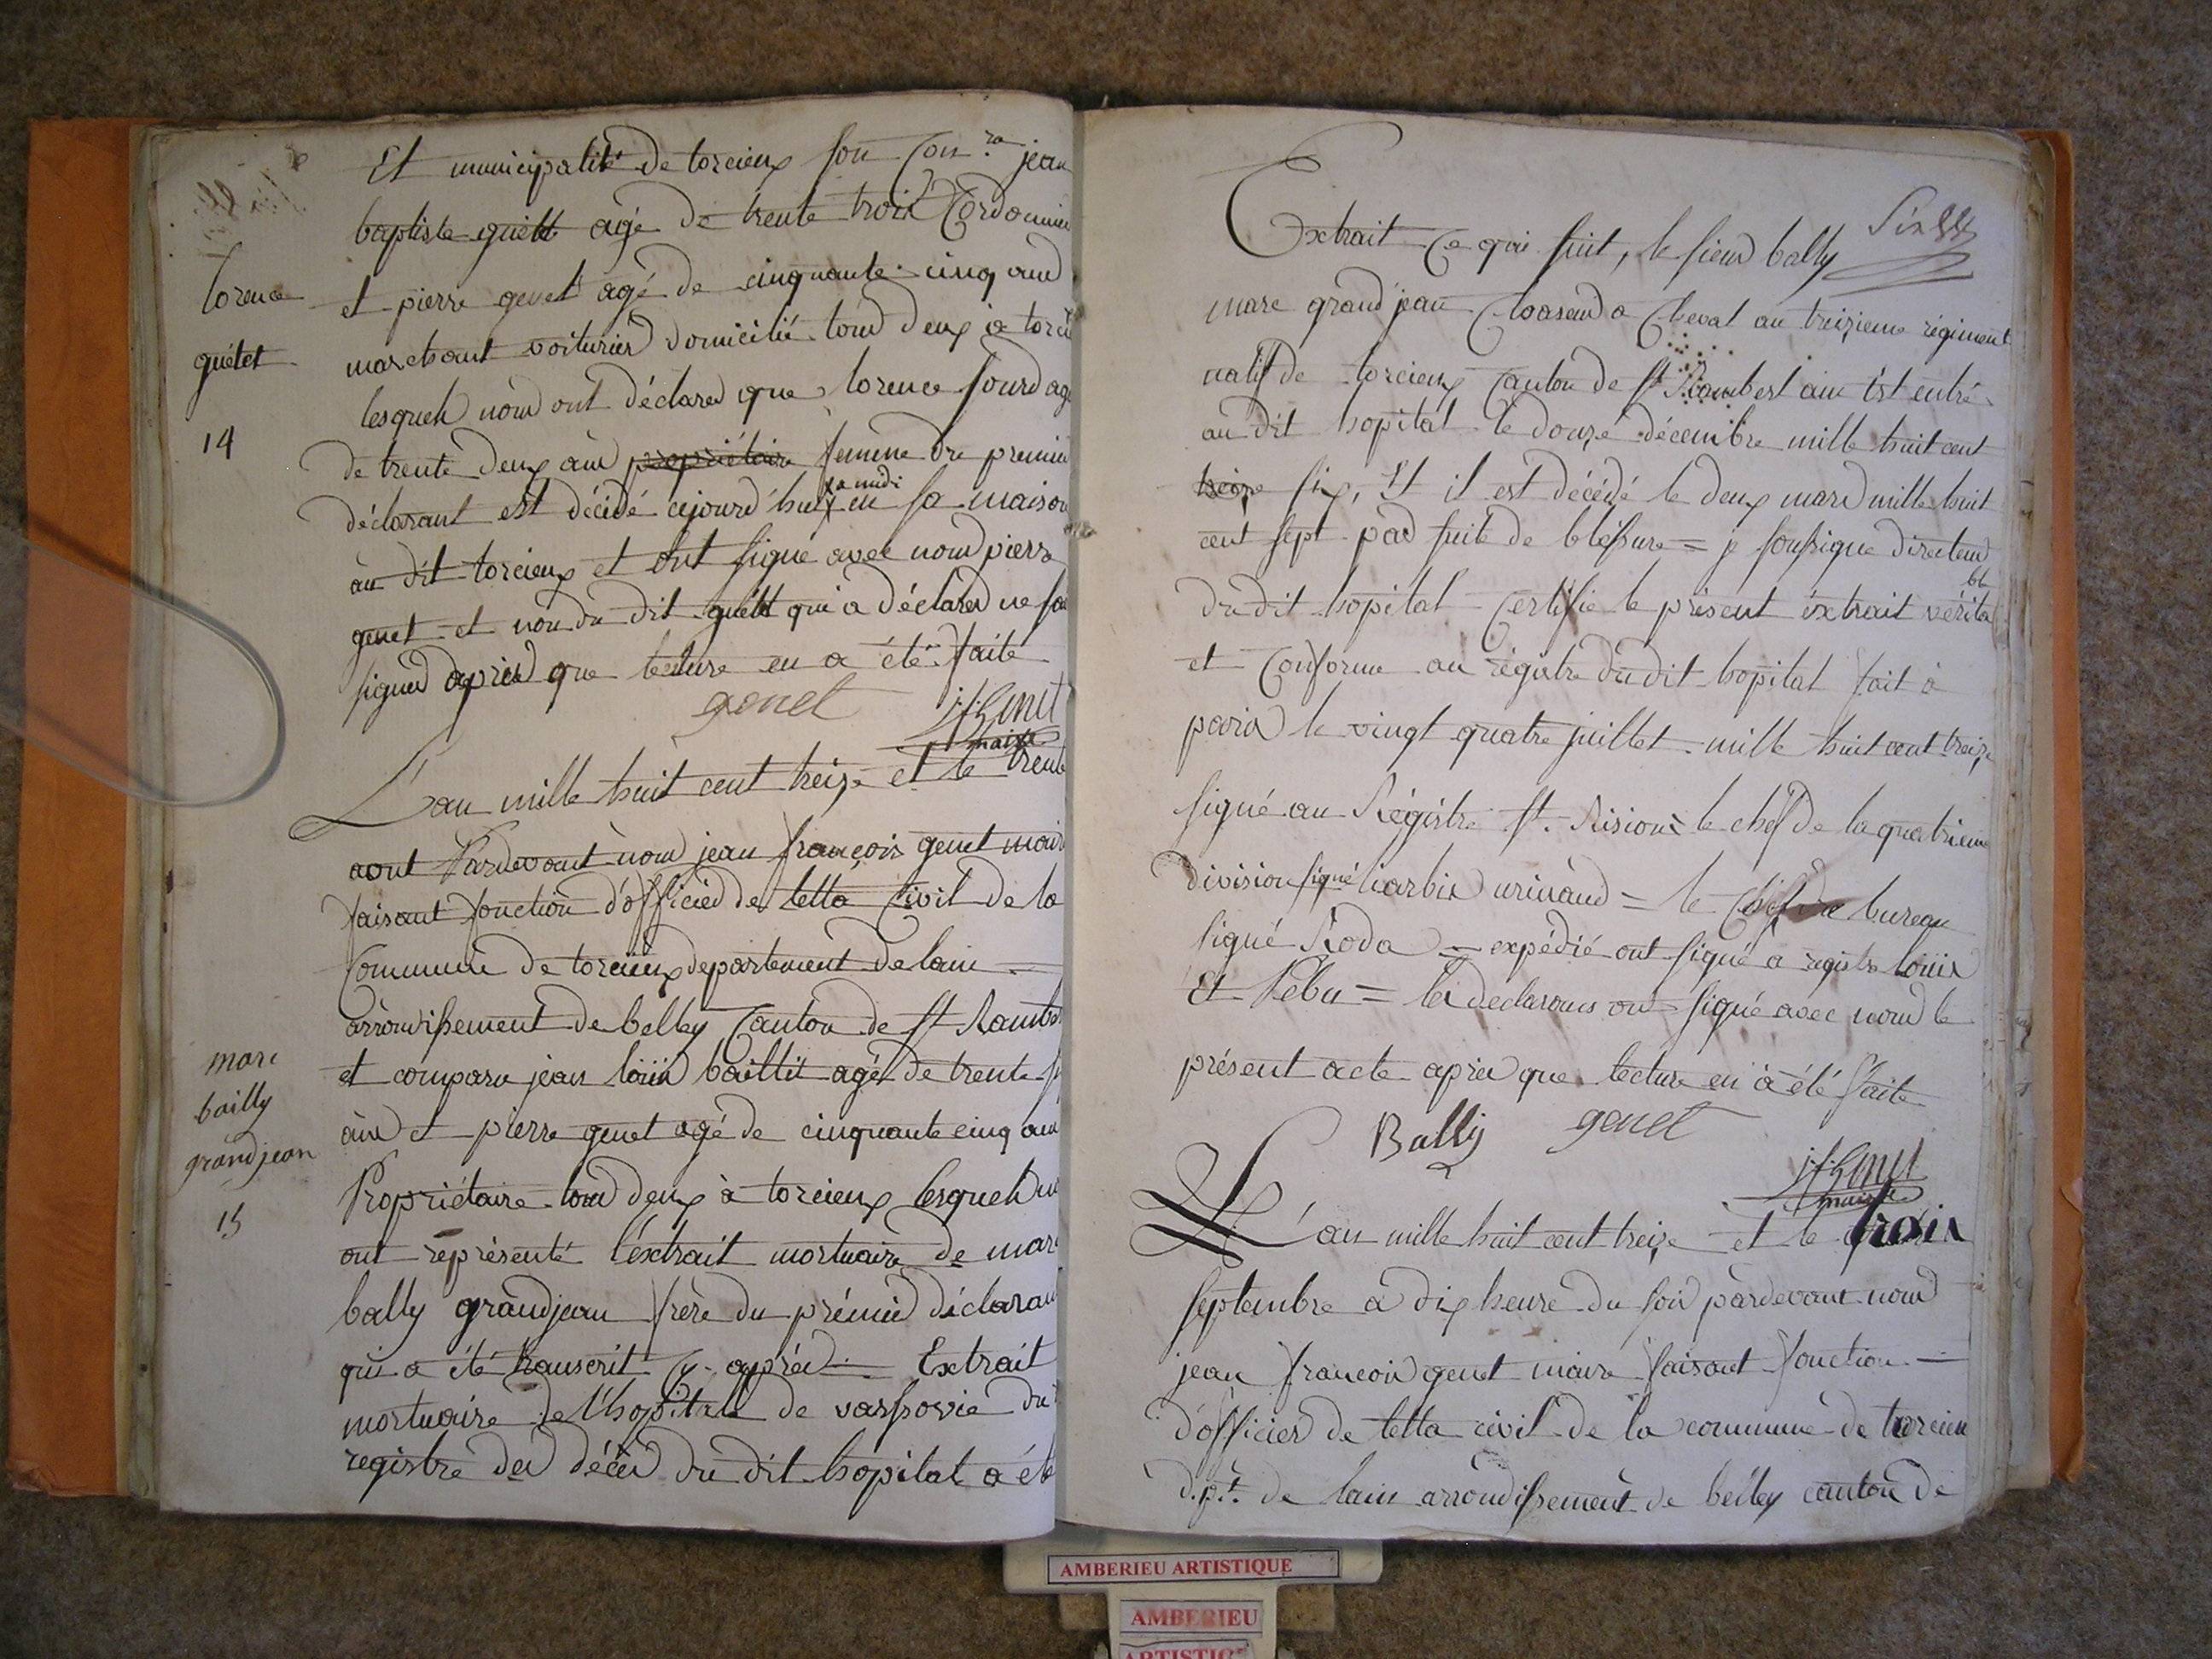 Et municipalité de torcieux son Con.ra jean
baptiste guétt agé de trente trois Cordonnier
lorence
et pierre genet agé de cinquante cinq ans
guétet
marchant voiturier domicilié tous deux a torci
lesquels nous ont déclarer que lorence sourd agé
14
de trente deux ans propriétaire femme du premier
déclarant est décédé cejourd'hui a midi en sa maison
au dit torcieux et ont signé avec nous pierre
genet et non du dit guétt qui a déclarer ne sa
signer après que lecture en a été faite
genet
j.f. genet
maire
L'an mille huit cent treize et le trente
aout Pardevant nous jean françois genet maire
faisant fonction d'officier de letta Civil de la
Commune de torcieux departement de lain
arrondissement de belley Canton de st Rambert
mari
et comparu jean louis baillit agé de trente
bailly
ans et pierre genet agé de cinquante cinq ans
grandjean
Propriétaire tous deux à torcieux lesquels
15
ont représenté l'éxtrait mortuaire de marc
bally grandjean frère du prémier déclarant
qui a été transcrit Cy-après Extrait
mortuaire de l'hopital de varsovie du
registre des décès du dit hopital a été
Six
Extrait Ce qui suit, le sieur bally
marc grand jean Chasseur a Cheval au treizieme régiment
natif de torcieux Canton de st Rambert ain est entré
au dit hopital le douze décembre mille huit cent
treize six, Et il est décédé le deux mars mille huit
cent sept par suite de blessure = je soussigne directeur
du dit hopital Certifie le présent éxtrait vérita ble
et Conforme au régistre du dit hopital fait à
paris le vingt quatre juillet mille huit cent treize
signé au Régistre st. le chef de la quatrieme
division signé = le Chef du bureau
signé Roda = expédié ont signé a registre louis
Et = les declarans ont signé avec nous le
présent acte après que lecture en à été faite
Bally genet
j.f. genet
maire
L'an mille huit cent treize et le trois
septembre a dix heure du soir pardevant nous
jean françois genet maire faisant fonction
d'officier de letta civil de la commune de torcieu
d.pt. de lain arrondissement de belley canton de
AMBERIEU ARTISTIQUE
AMBERIEU
ARTISTIQ